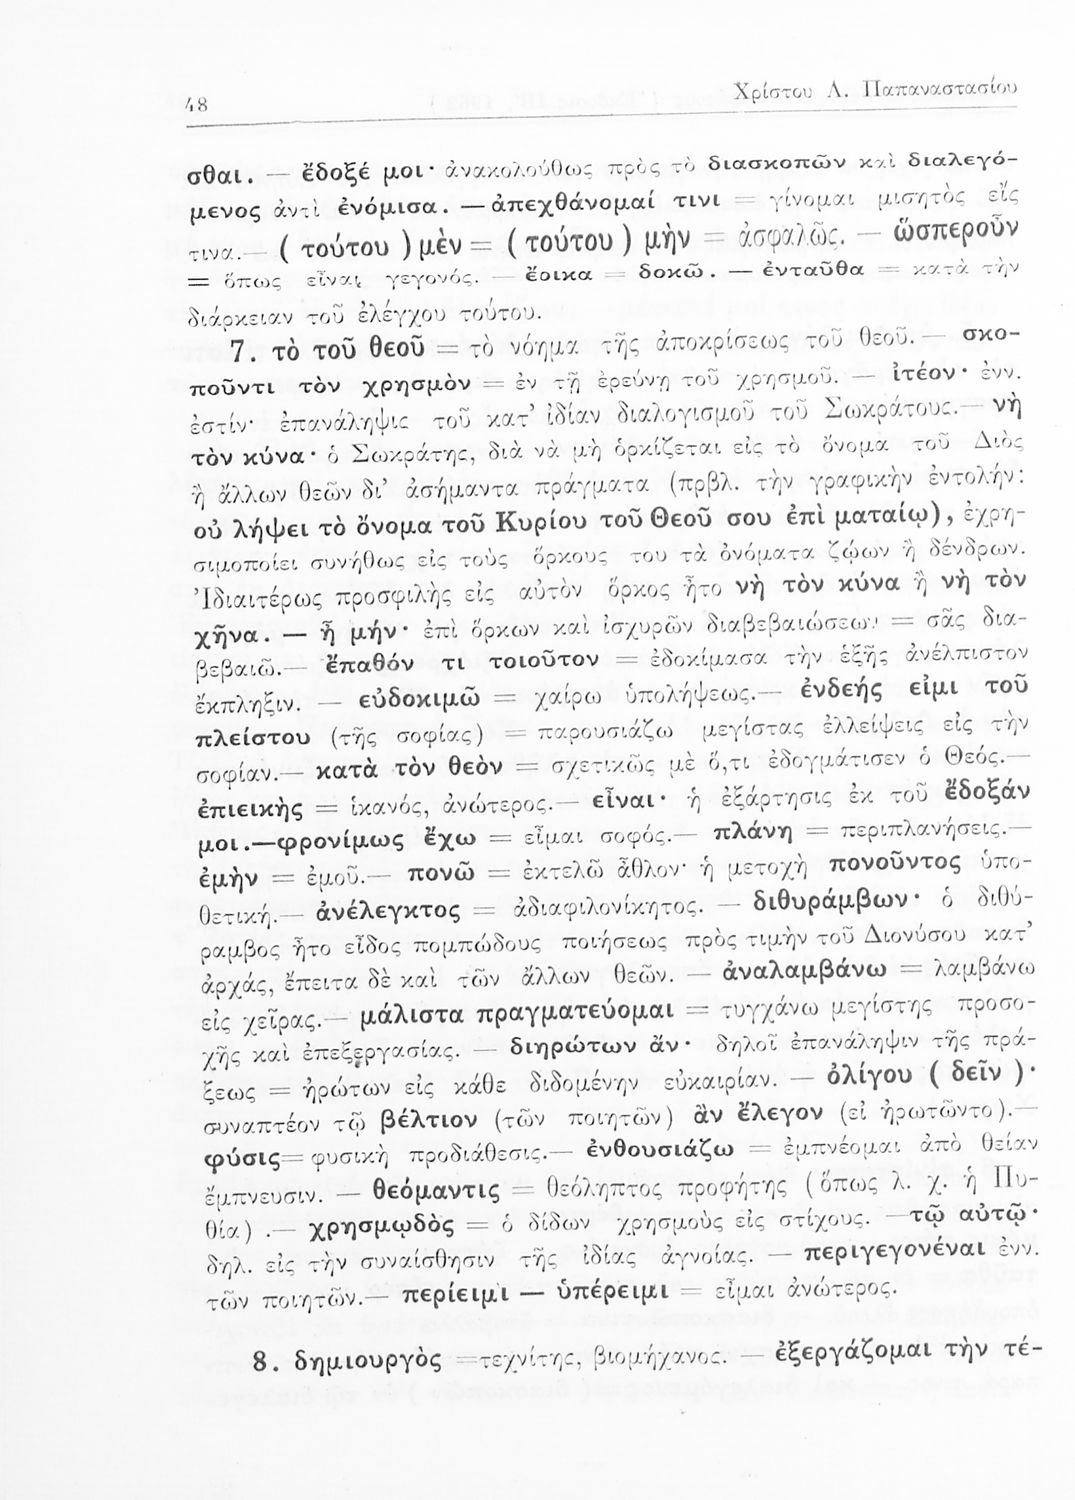 48
Χρίστου Λ. Παπαναστασίου
σθαι. — ἔδοξέ μοι· ἀνακολούθως πρὸς τὸ διασκοπῶν καὶ διαλεγό-
μενος ἀντὶ ἐνόμισα. — ἀπεχθάνομαί τινι = γίνομαι μισητὸς εἴς
τινα.— ( τούτου ) μὲν = ( τούτου ) μὴν = ἀσφαλῶς. — ὥσπεροῦν
= ὅπως εἶναι γεγονός. — ἔοικα = δοκῶ. — ἐνταῦθα = κατὰ τὴν
διάρκειαν τοῦ ἐλέγχου τούτου.
7. τὸ τοῦ θεοῦ = τὸ νόημα τῆς ἀποκρίσεως τοῦ θεοῦ.— σκο-
ποῦντι τὸν χρησμὸν = ἐν τῇ ἐρεύνῃ τοῦ χρησμοῦ. — ἰτέον· ἐνν.
ἐστίν· ἐπανάληψις τοῦ κατ’ ἰδίαν διαλογισμοῦ τοῦ Σωκράτους.— νὴ
τὸν κύνα· ὁ Σωκράτης, διὰ νὰ μὴ ὁρκίζεται εἰς τὸ ὄνομα τοῦ Διὸς
ἢ ἄλλων θεῶν δι’ ἀσήμαντα πράγματα (πρβλ. τὴν γραφικὴν ἐντολήν:
οὐ λήψει τὸ ὄνομα τοῦ Κυρίου τοῦ Θεοῦ σου ἐπὶ ματαίῳ), ἐχρη-
σιμοποίει συνήθως εἰς τοὺς ὅρκους του τὰ ὀνόματα ζῴων ἢ δένδρων.
Ἰδιαιτέρως προσφιλὴς εἰς αὐτὸν ὅρκος ἦτο νὴ τὸν κύνα ἢ νὴ τὸν
χῆνα. — ἦ μήν· ἐπὶ ὅρκων καὶ ἰσχυρῶν διαβεβαιώσεων = σᾶς δια-
βεβαιῶ.— ἔπαθόν τι τοιοῦτον = ἐδοκίμασα τὴν ἑξῆς ἀνέλπιστον
ἔκπληξιν. — εὐδοκιμῶ = χαίρω ὑπολήψεως.— ἐνδεής εἰμι τοῦ
πλείστου (τῆς σοφίας) = παρουσιάζω μεγίστας ἐλλείψεις εἰς τὴν
σοφίαν.— κατὰ τὸν θεὸν = σχετικῶς μὲ ὅ,τι ἐδογμάτισεν ὁ Θεός.—
ἐπιεικὴς = ἱκανός, ἀνώτερος.— εἶναι· ἡ ἐξάρτησις ἐκ τοῦ ἔδοξάν
μοι.—φρονίμως ἔχω = εἶμαι σοφός.— πλάνη = περιπλανήσεις.—
ἐμὴν = ἐμοῦ.— πονῶ = ἐκτελῶ ἆθλον· ἡ μετοχὴ πονοῦντος ὑπο-
θετική.— ἀνέλεγκτος = ἀδιαφιλονίκητος. — διθυράμβων· ὁ διθύ-
ραμβος ἦτο εἶδος πομπώδους ποιήσεως πρὸς τιμὴν τοῦ Διονύσου κατ’
ἀρχάς, ἔπειτα δὲ καὶ τῶν ἄλλων θεῶν. — ἀναλαμβάνω = λαμβάνω
εἰς χεῖρας.— μάλιστα πραγματεύομαι = τυγχάνω μεγίστης προσο-
χῆς καὶ ἐπεξεργασίας. — διηρώτων ἄν· δηλοῖ ἐπανάληψιν τῆς πρά-
ξεως = ἠρώτων εἰς κάθε διδομένην εὐκαιρίαν. — ὀλίγου ( δεῖν )·
συναπτέον τῷ βέλτιον (τῶν ποιητῶν) ἂν ἔλεγον (εἰ ἠρωτῶντο).—
φύσις= φυσικὴ προδιάθεσις.— ἐνθουσιάζω = ἐμπνέομαι ἀπὸ θείαν
ἔμπνευσιν. — θεόμαντις = θεόληπτος προφήτης (ὅπως λ. χ. ἡ Πυ-
θία) .— χρησμῳδὸς = ὁ δίδων χρησμοὺς εἰς στίχους. —τῷ αὐτῷ·
δηλ. εἰς τὴν συναίσθησιν τῆς ἰδίας ἀγνοίας. — περιγεγονέναι ἐνν.
τῶν ποιητῶν.— περίειμι — ὑπέρειμι = εἶμαι ἀνώτερος.
8. δημιουργὸς =τεχνίτης, βιομήχανος. — ἐξεργάζομαι τὴν τέ-